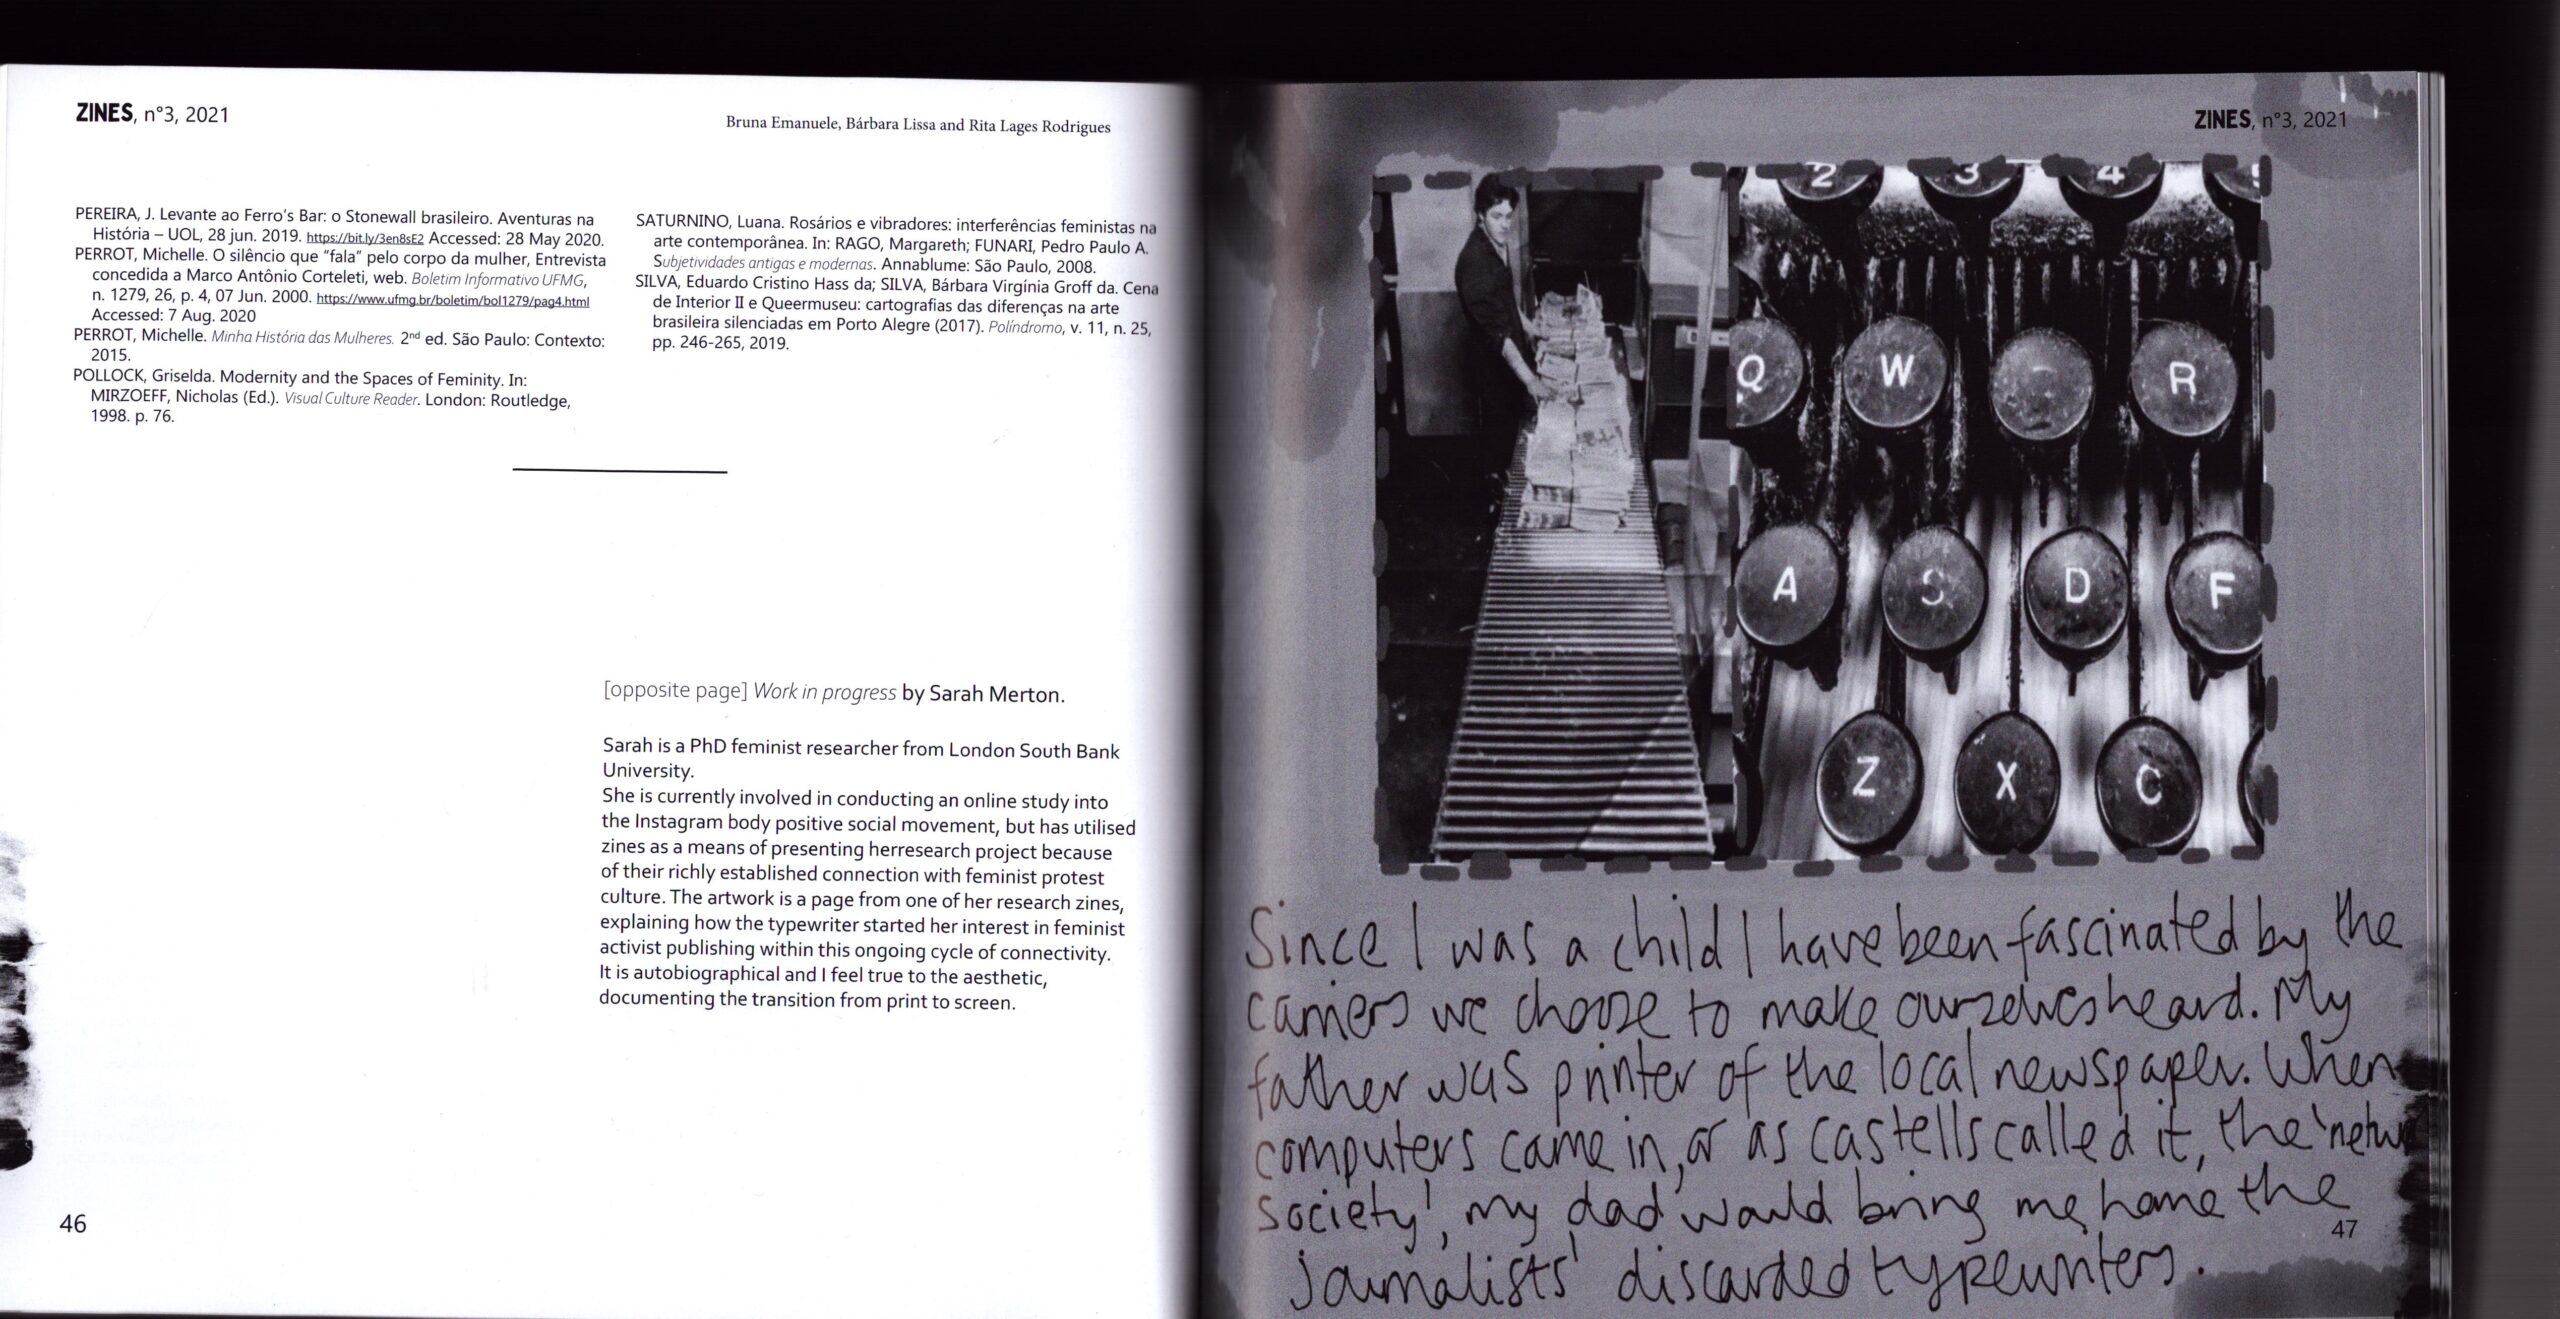 ZINES, n°3, 2021
Bruna Emanuele, Bárbara Lissa and Rita Lages Rodrigues
PEREIRA, J. Levante ao Ferro's Bar: o Stonewall brasileiro. Aventuras na
História – UOL, 28 jun. 2019. https://bit.ly/3en8sE2 Accessed: 28 May 2020.
PERROT, Michelle. O silêncio que "fala" pelo corpo da mulher, Entrevista
concedida a Marco Antônio Corteleti, web. Boletim Informativo UFMG,
n. 1279, 26, p. 4, 07 Jun. 2000. https://www.ufmg.br/boletim/bol1279/pag4.html
Accessed: 7 Aug. 2020
PERROT, Michelle. Minha História das Mulheres. 2nd ed. São Paulo: Contexto:
2015.
POLLOCK, Griselda. Modernity and the Spaces of Feminity. In:
MIRZOEFF, Nicholas (Ed.). Visual Culture Reader. London: Routledge,
1998. p. 76.
SATURNINO, Luana. Rosários e vibradores: interferências feministas na
arte contemporânea. In: RAGO, Margareth; FUNARI, Pedro Paulo A.
Subjetividades antigas e modernas. Annablume: São Paulo, 2008.
SILVA, Eduardo Cristino Hass da; SILVA, Bárbara Virgínia Groff da. Cena
de Interior II e Queermuseu: cartografias das diferenças na arte
brasileira silenciadas em Porto Alegre (2017). Políndromo, v. 11, n. 25,
pp. 246-265, 2019.
[opposite page] Work in progress by Sarah Merton.
Sarah is a PhD feminist researcher from London South Bank
University.
She is currently involved in conducting an online study into
the Instagram body positive social movement, but has utilised
zines as a means of presenting herresearch project because
of their richly established connection with feminist protest
culture. The artwork is a page from one of her research zines,
explaining how the typewriter started her interest in feminist
activist publishing within this ongoing cycle of connectivity.
It is autobiographical and I feel true to the aesthetic,
documenting the transition from print to screen.
46
ZINES, n°3, 2021
2 3 4 5
Q W R
A S D F
Z X C
Since I was a child I have been fascinated by the
carriers we choose to make ourselves heard. My
father was printer of the local newspaper. When
computers came in, or as castells called it, the 'netw
society', my dad would bring me home the
journalists' discarded typewriters.
47